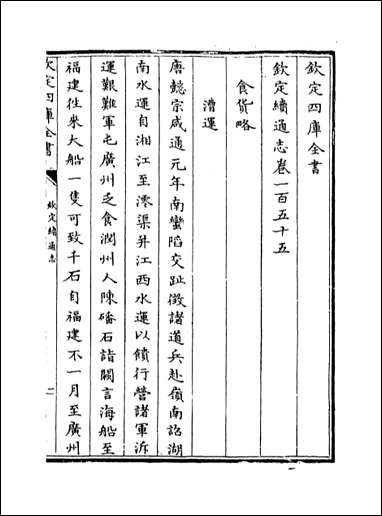 欽定四庫全書
欽定續通志卷一百五十五
食貨略
漕運
唐懿宗咸通元年南蠻陷交趾徵諸道兵赴嶺南詔湖
南水運自湘江至澪渠并江西水運以饋行營諸軍泝
運艱難軍屯廣州乏食潤州人陳磻石詣闕言海船至
福建往來大船一隻可致千石自福建不一月至廣州
欽定四庫全書
欽定續通志